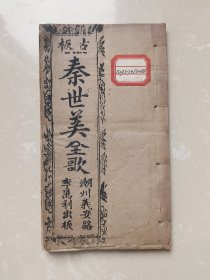 古板
秦世美全歌
潮州義安路
李萬利出板